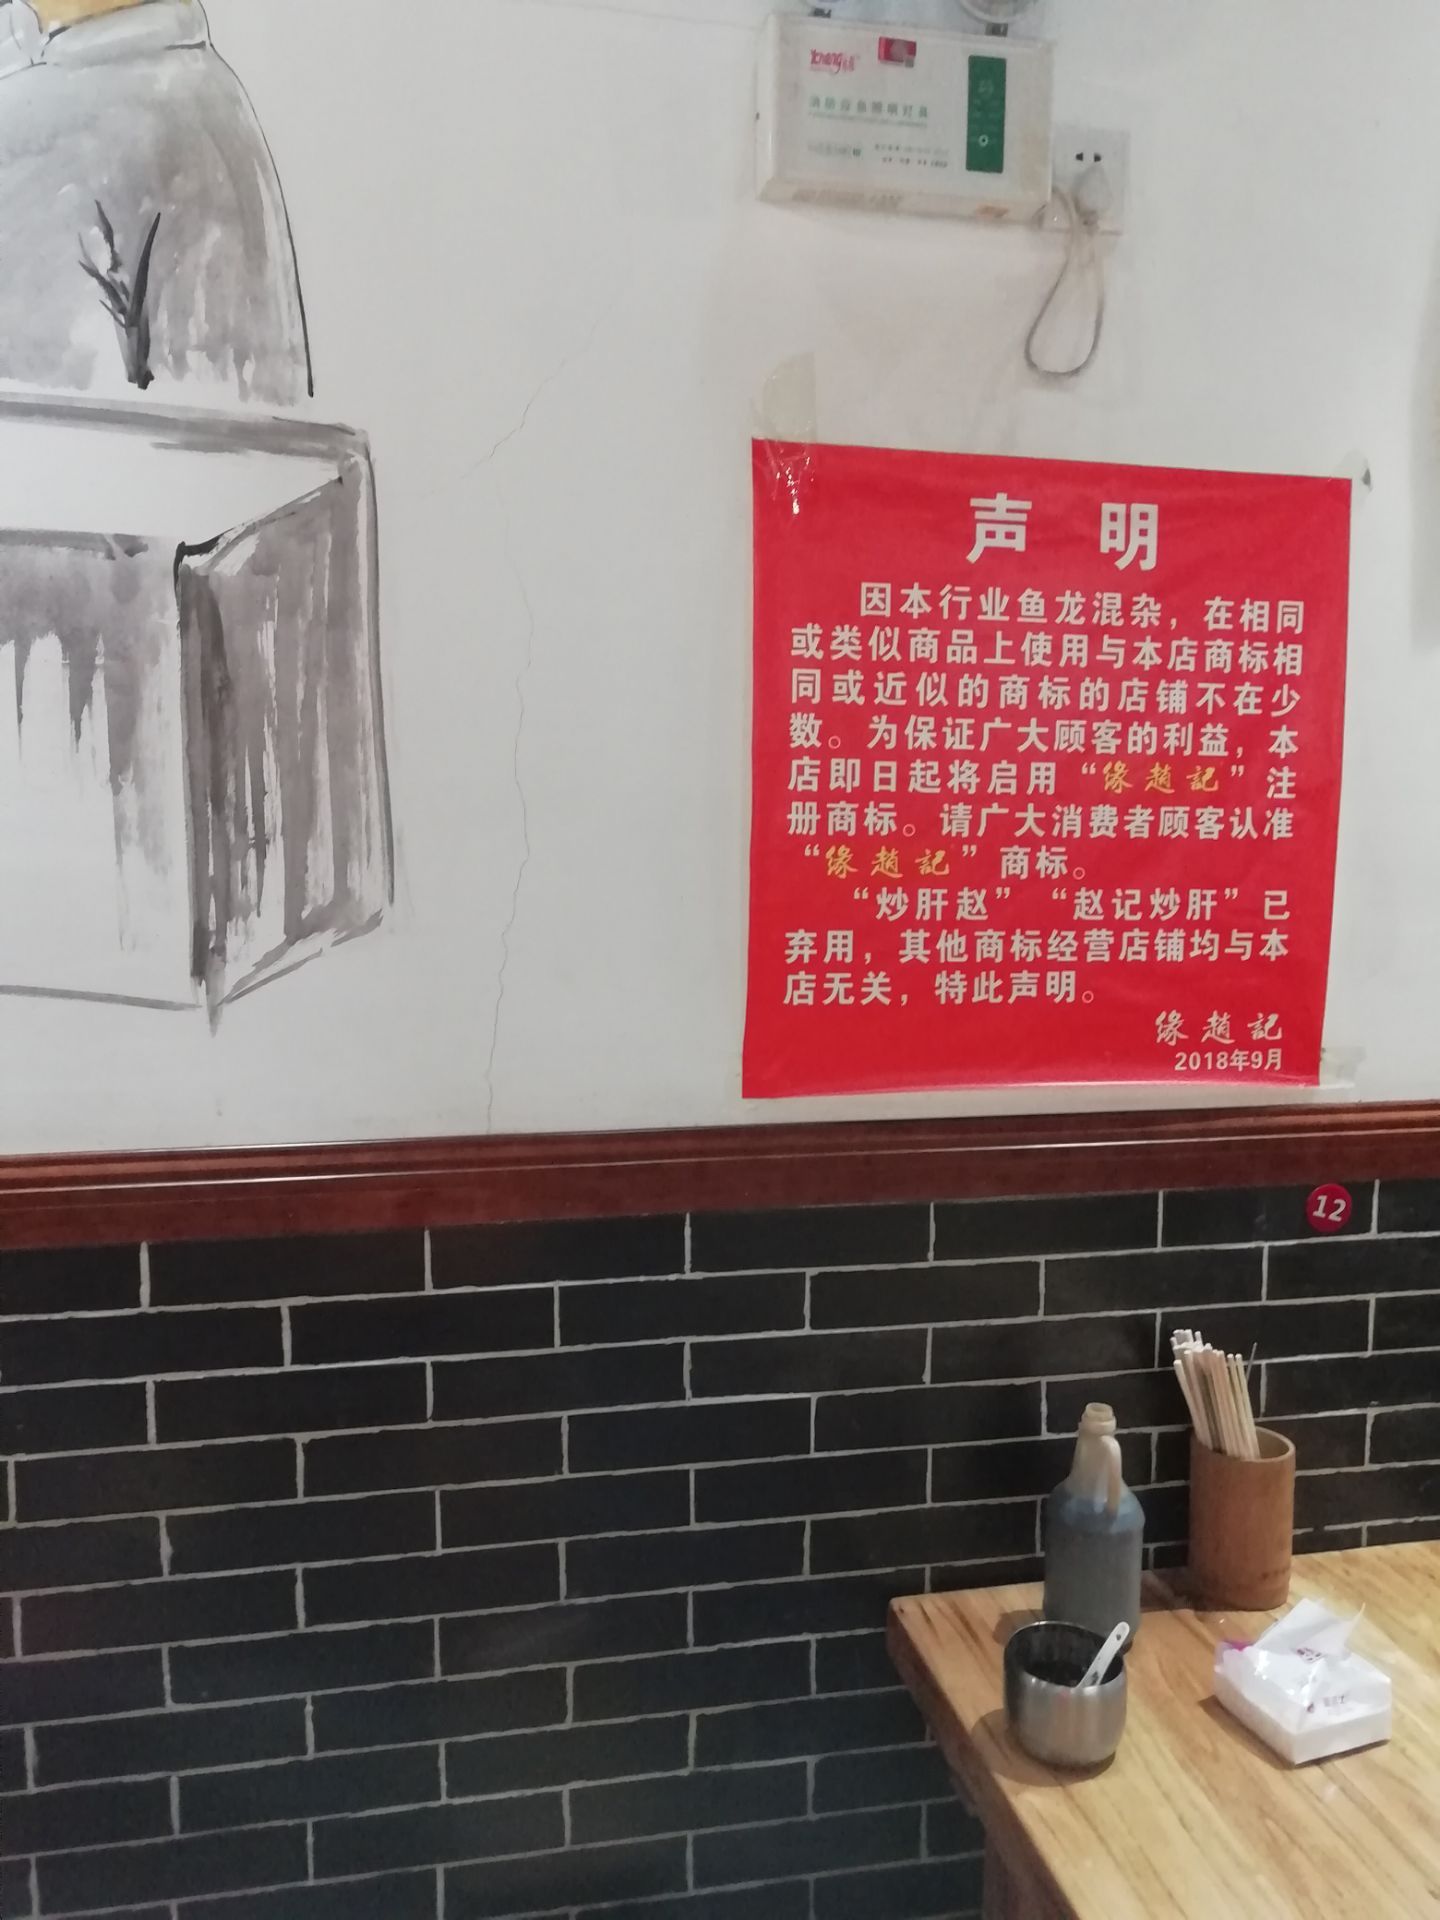 消防应急照明灯具
声 明
因本行业鱼龙混杂，在相同
或类似商品上使用与本店商标相
同或近似的商标的店铺不在少
数。为保证广大顾客的利益，本
店即日起将启用“缘趙記”注
册商标。请广大消费者顾客认准
“缘趙記”商标。
“炒肝赵”“赵记炒肝”已
弃用，其他商标经营店铺均与本
店无关，特此声明。
缘趙記
2018年9月
12